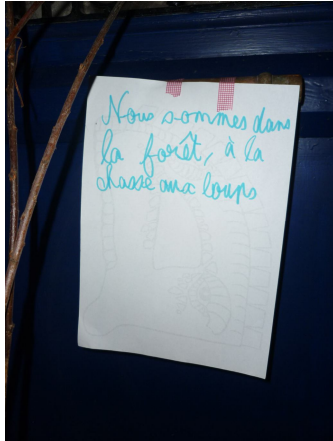 Nous sommes dans
la forêt, à la
chasse aux loups